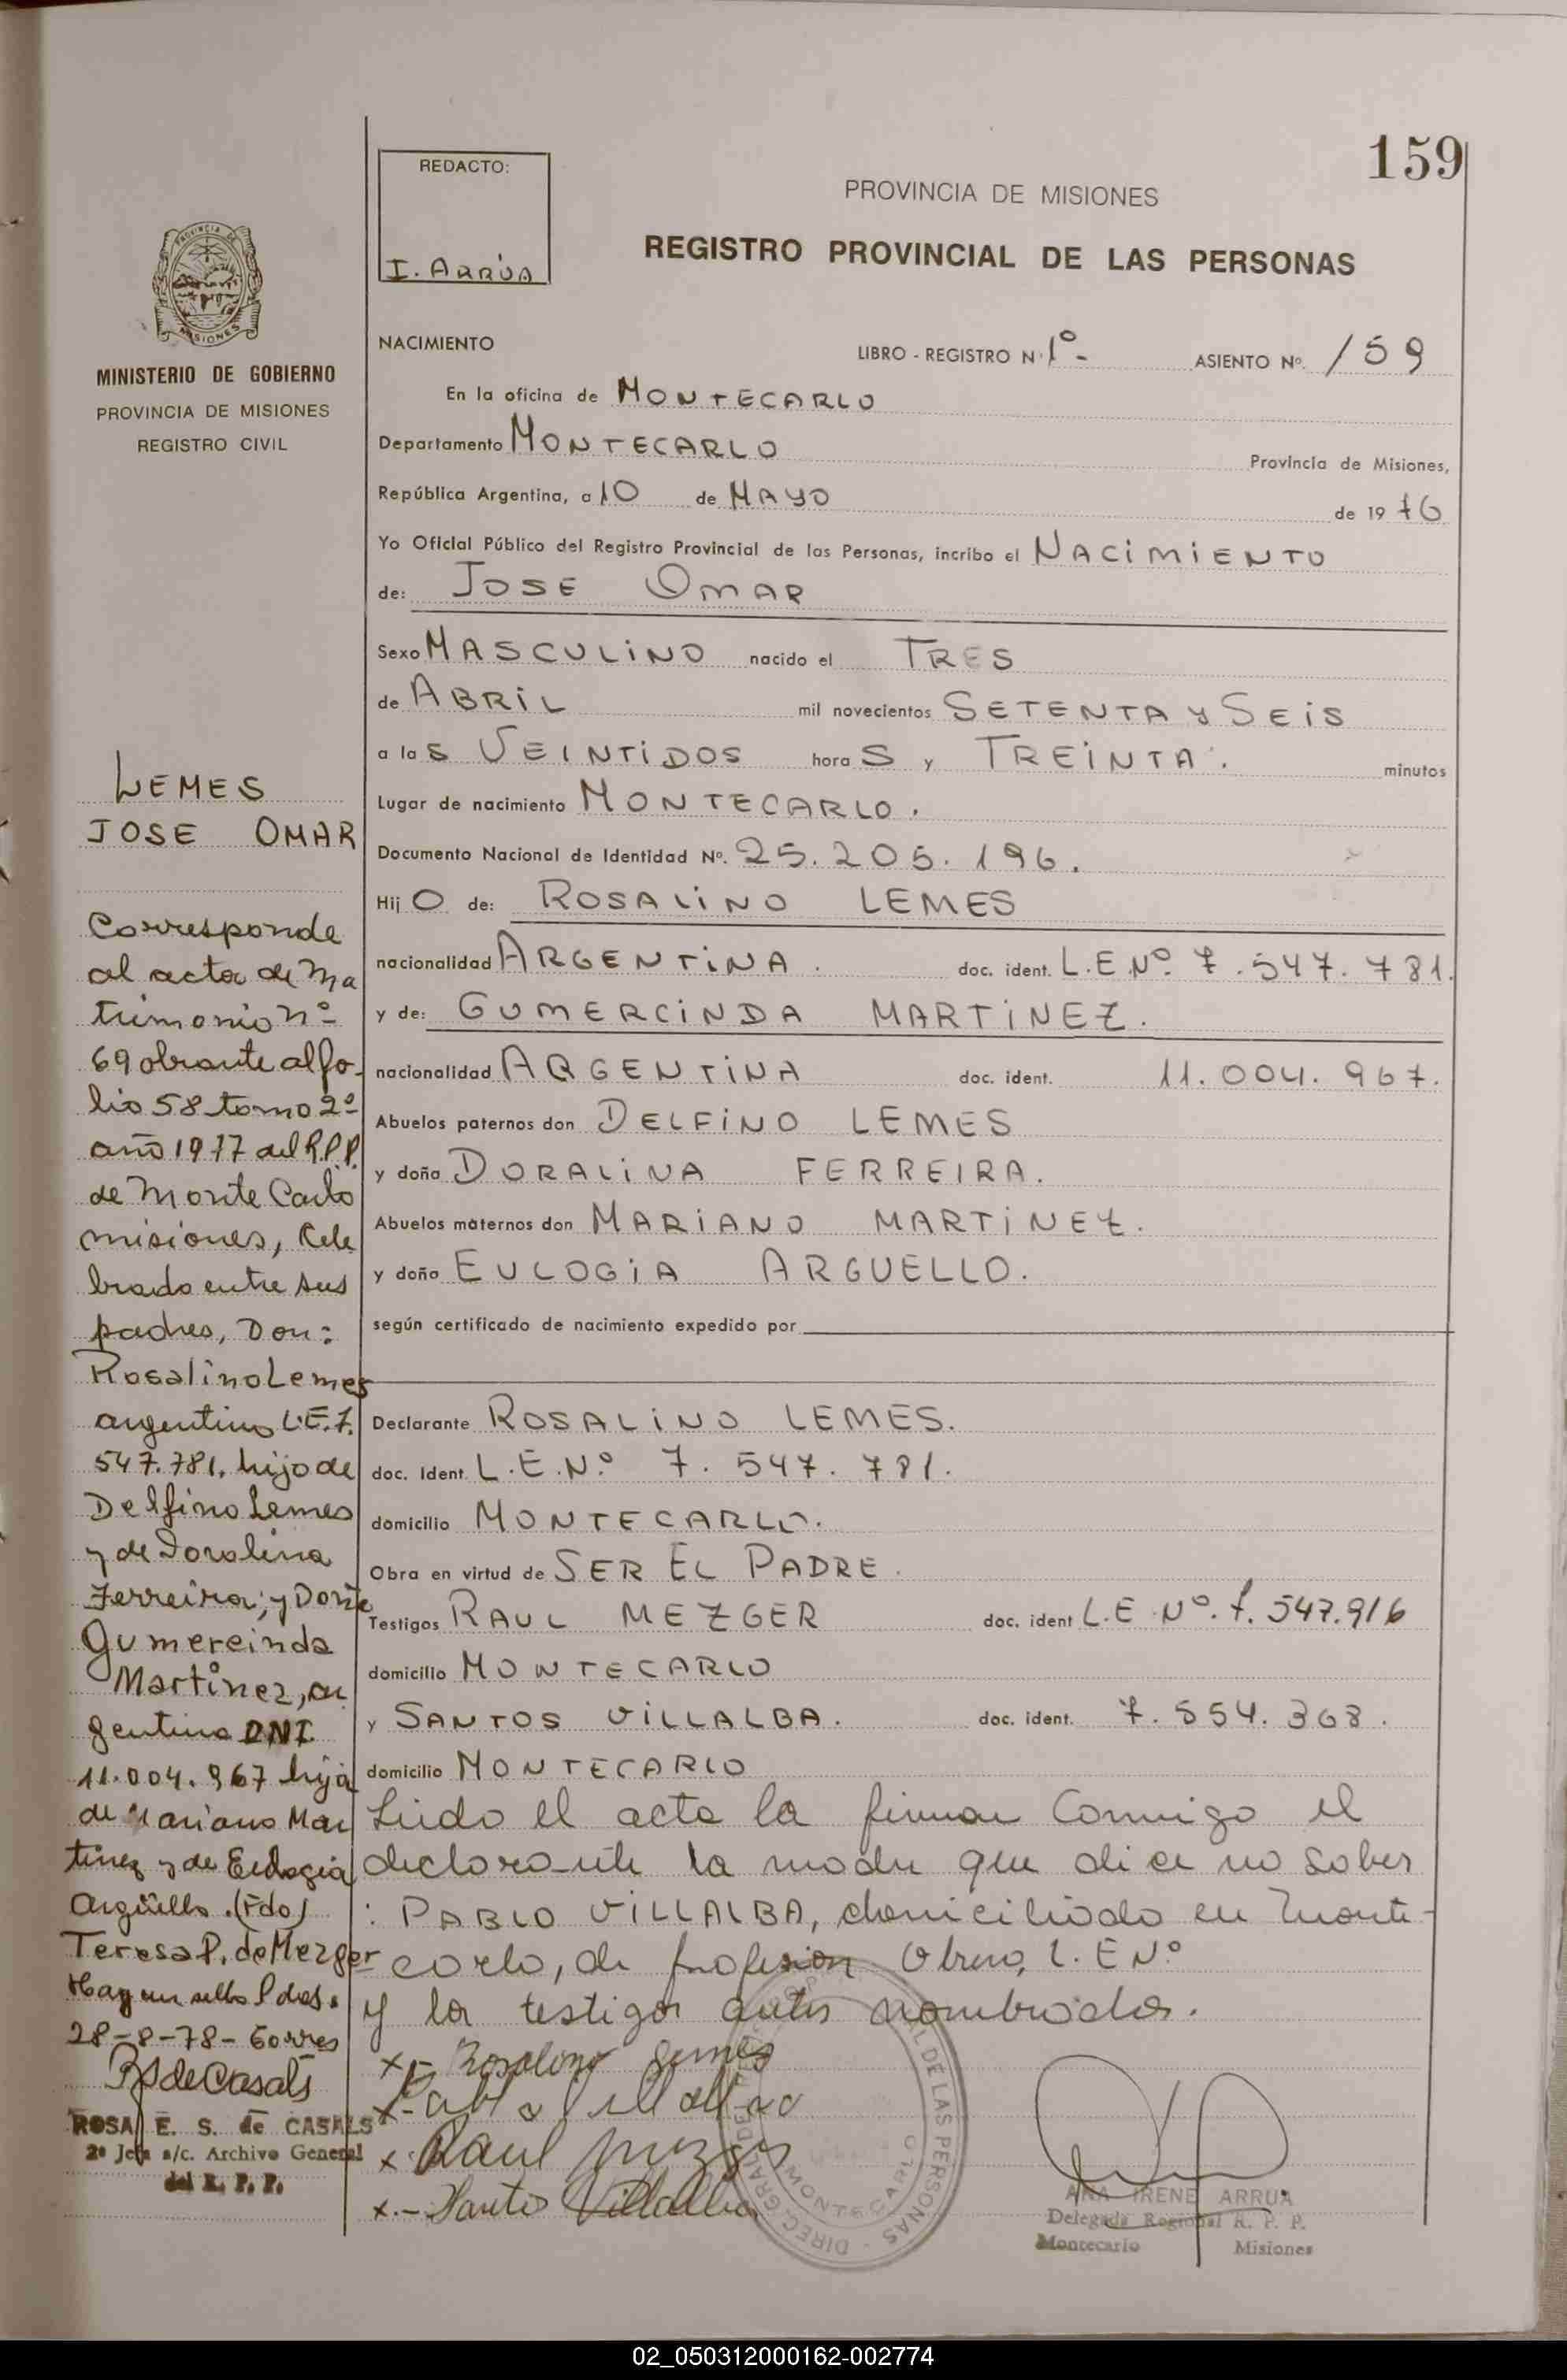 159
REDACTO:
I. ARRÚA
PROVINCIA DE MISIONES
REGISTRO PROVINCIAL DE LAS PERSONAS
PROVINCIA DE
MISIONES
MINISTERIO DE GOBIERNO
PROVINCIA DE MISIONES
REGISTRO CIVIL
LEMES
JOSE OMAR
Corresponde
al acta de Ma
trimonio nº
69 obrante al fo-
lio 58 tomo 2º
año 1977 del R.P.P.
de Monte Carlo
misiones, Cele
brado entre sus
padres, Don:
Rosalino Lemes
argentino L.E.7.
547.781, hijo de
Delfino Lemes
y de Doralina
Ferreira; y Doña
Gumercinda
Martinez, ar
gentina DNI
11.004.967 hija
de Mariano Mar
tinez y de Eulogia
Argüello. (Fdo)
Teresa P. de Mezger
Hay un sello Pdas.
28-8-78-
ROSA E. S. de CASALS
2º Jefe a/c. Archivo General
del R. P. P.
NACIMIENTO
LIBRO - REGISTRO Nº 1º- ASIENTO Nº. 159
En la oficina de MONTECARLO
Departamento MONTECARLO Provincia de Misiones,
República Argentina, a 10 de MAYO de 1976
Yo Oficial Público del Registro Provincial de las Personas, incribo el NACIMIENTO
de: JOSE OMAR
Sexo MASCULINO nacido el TRES
de ABRIL mil novecientos SETENTA y SEIS
a las VEINTIDOS horas y TREINTA. minutos
Lugar de nacimiento MONTECARLO.
Documento Nacional de Identidad Nº. 25.205.196.
Hijo de: ROSALINO LEMES
nacionalidad ARGENTINA. doc. ident. L.E.Nº. 7.547.781.
y de: GUMERCINDA MARTINEZ.
nacionalidad ARGENTINA doc. ident. 11.004.967.
Abuelos paternos don DELFINO LEMES
y doña DORALINA FERREIRA.
Abuelos maternos don MARIANO MARTINEZ.
y doña EULOGIA ARGUELLO.
según certificado de nacimiento expedido por
Declarante ROSALINO LEMES.
doc. Ident. L.E.Nº 7.547.781.
domicilio MONTECARLO.
Obra en virtud de SER EL PADRE.
Testigos RAUL MEZGER doc. ident L.E.Nº.7.547.916
domicilio MONTECARLO
y SANTOS VILLALBA. doc. ident. 7.554.368.
domicilio MONTECARLO
Leído el acta la firman Conmigo el
declarante la madre que dice no saber
: PABLO VILLALBA, domiciliado en Monte-
carlo, de profesion Obrero, L.E Nº
y los testigos antes nombrados.
x- Rosalino Lemes
x- Pablo Villalba
x Raul Mezger
x.- Santos Villalba
DE LAS PERSONAS
MONTECARLO
ANA IRENE ARRUA
Delegada Regional R. P. P.
Montecarlo Misiones
02_050312000162-002774